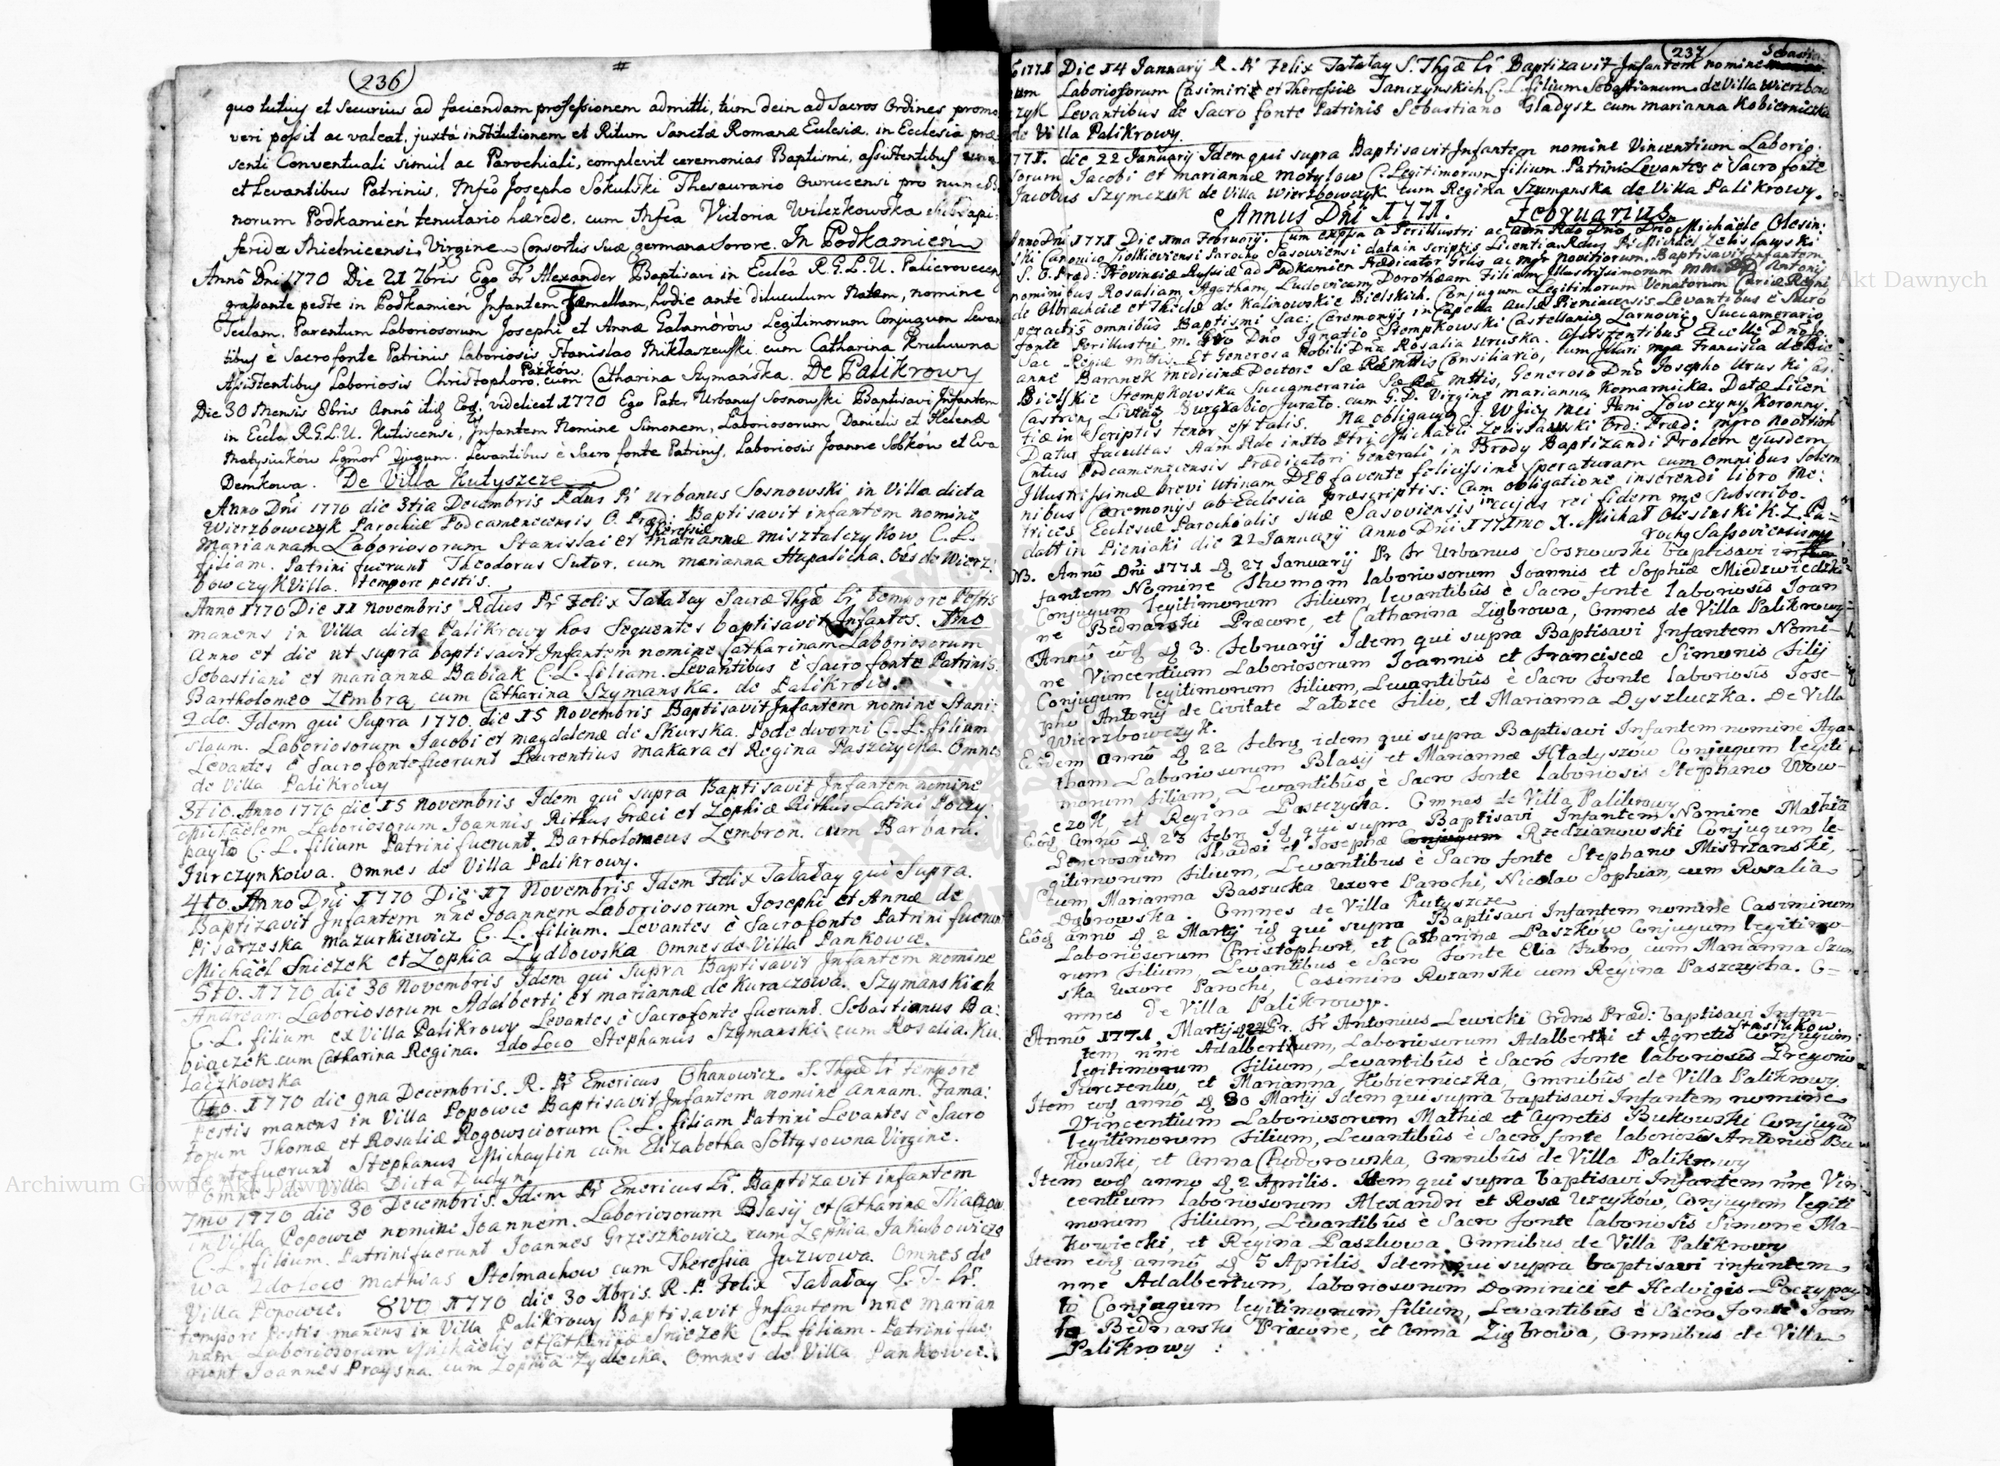 236
#
quo tutius et securius ad faciendam professionem admitti, tum dein ad Sacros Ordines promo
veri possit ac valeat, juxta institutionem et Ritum Sanctæ Romanæ Ecclesiæ, in Ecclesia præ
senti Conventuali simul ac Parochiali, complevit ceremonias Baptismi, assistentibus
et Levantibus Patrinis, Josepho Sokulski Thesaurario Owrucensi pro nunc
norum Podkamień tenutario hærede, cum Victoria Wilczkowska
ferida Mielnicensi, Virgine Consortis suæ germana Sorore. In Podkamień
Annô Dni 1770 Die 21 7bris Ego Fr Alexander Baptisavi in Ecclia R.G.L.U. Palicrovecen
grassante peste in Podkamień Infantem Fæmellam, hodie ante diluculum Natam, nomine
Teclam. Parentum Laboriosorum Josephi et Annæ Legitimorum Conjugum Levan
tibus è Sacro fonte Patrinis Laboriosis Stanislao Miklaszewski cum Catharina
Assistentibus Laboriosis Christophoro Paszkow, cum Catharina Szymańska. De Palikrowy
Die 30 Mensis 8bris Annô videlicet 1770 Ego Pater Urbanus Sosnowski Baptisavi Infantem
in Eccla R.G.L.U. Infantem Nomine Simonem, Laboriosorum Danielis et Helenæ
Matysiuków Levantibus è Sacro fonte Patrinis, Laboriosis Joanne Sobkow et Eva
Demkowa. De Villa Hutyszcze
Anno Dni 1770 die 3tia Decembris Rdus Pr Urbanus Sosnowski in Villa dicta
Wierzbowczyk Parochiæ Podcamenecensis O. Præd: Baptisavit infantem nomine
Mariannam Laboriosorum Stanislai et Theresiæ Misztalczykow, C. L.
filiam. Patrini fuerunt Theodorus Sutor, cum Marianna Hupalicha. Oēs de Wierz:
bowczyk Villa. tempore pestis.
Anno 1770 Die 11 Novembris Rdus Pr Felix Tałałay Sacræ Thgæ Lr tempore Pestis
manens in Villa dicta Palikrowy hos sequentes baptisavit Infantes. Imo
Anno et die ut supra baptisavit Infantem nomine Catharinam Laboriosorum
Sebastiani et Mariannæ Babiak C. L. filiam. Levantibus è Sacro fonte Patrinis.
Bartholomeo Zembra, cum Catharina Szymanska. de Palikrowy.
2do. Idem qui Supra 1770. die 15 Novembris Baptisavit Infantem nomine Stani:
slaum. Laboriosorum Jacobi et Magdalenæ de Skurska. Podedworni C. L. filium
Levantes è Sacro fonte fuerunt Laurentius Makara et Regina Paszczycha. Omnes
de Villa Palikrowy
3tio. Anno 1770 die 15 Novembris Idem qui supra Baptisavit Infantem nomine
Michaelem Laboriosorum Joannis Rithus Græci et Zophiæ Rithus Latini Poczy
payło C. L. filium Patrini fuerunt. Bartholomeus Zembron. cum Barbara.
Jurczynkowa. Omnes de Villa Palikrowy.
4to. Anno Dni 1770 Die 17 Novembris Idem Felix Tałałay qui Supra.
Baptizavit Infantem nne Joannem Laboriosorum Josephi et Annæ de
Pisarzeska Mazurkiewicz C. L. filium. Levantes è Sacro fonte Patrini fuerunt
Michaël Sniezek et Zophia Zydłowska Omnes de Villa Pankowce.
5to. 1770 die 30 Novembris Idem qui Supra Baptisavit Infantem nomine
Andream Laboriosorum Adalberti et Mariannæ de Kuraczowa. Szymanskich
C. L. filium ex Villa Palikrowy Levantes è Sacro fonte fuerunt. Sebastianus Ba:
biaczek cum Catharina Regina. 2do Loco Stephanus Szymanski cum Rosalia. Ku.
laczkowska
6to. 1770 die 9na Decembris. R. Pr Emericus Ohanowicz. S. Thgæ Lr tempore
Pestis manens in Villa Popowce Baptisavit Infantem nomine Annam. Fama:
torum Thomæ et Rosaliæ Rogowsciorum C. L. filiam Patrini Levantes è Sacro
fonte fuerunt Stephanus Michaylin cum Elizabetha Sołtysowna Virgine.
Omnes de Villa Dicta Dudyn.
7mo 1770 die 30 Decembris. Idem Pr Emericus Lr. Baptizavit infantem
in Villa Popowce nomine Joannem. Laboriosorum Blasij et Catharinæ
C. L. filium. Patrini fuerunt Joannes Grzeszkowicz cum Zophia Jakubowiczo
wa 2do Loco Mathias Stelmachow cum Theressia Juzwowa. Omnes de
Villa Popowce. 8vo 1770 die 30 Xbris. R. P. Felix Tałałay S. T. Lr.
tempore Pestis manens in Villa Palikrowy Baptisavit Infantem nne Marian
nam Laboriosorum Michaelis et Catharinæ Sniezek C. L. filiam. Patrini fue
runt Joannes Praysna. cum Zophia Zydecka. Omnes de Villa Pankowce.
237
Die 14 Januarij R. Pr Felix Tałałay S. Thgæ Lr Baptizavit Infantem nomine Sebasti
Laboriosorum Casimiri et Theresiæ Janczynskich C. L. filium Sebastianum de Villa Wierzbow
czyk Levantibus de Sacro fonte Patrinis Sebastiano Gładysz cum Marianna Kobierniczka
de Villa Palikrowy.
1771. die 22 Januarij Idem qui supra Baptisavit Infantem nomine Vincentium Laborio:
sorum Jacobi et Mariannæ Motylow C. Legitimorum filium. Patrini Levantes è Sacro fonte
Jacobus Szymczuk de Villa Wierzbowczyk cum Regina Szumanska de Villa Palikrowy.
Annus Dñi 1771. Februarius
Anno Dni 1771 Die 1ma February. Cum a Perillustri ac Rdo Dno Dno Michaële Olesin:
ski Canonico Zołkieviensi Parocho Sasoviensi data in scriptis Licentia Rdus Pr Michaël Zeliszławski
S. O. Præd: Provinciæ Russiæ ad Podkamien Prædicator Grlis ac Mgr Novitiorum. Baptisavit Infantem
nominibus Rosaliam, Agatham, Ludovicam, Dorotheam Filiam Illustrissimorum Antonij
de Olbrachcice et Theclæ de Kalinowskie Bielskich. Conjugum Legitimorum Venatorum Curiæ Regni
peractis omnibus Baptismi Sac: Ceremonijs in Capella aulæ Pieniacensis Levantibus è Sacro
fonte Perillustri Dno Ignatio Stempkowski Castellanic Zarnovie, Succamerario
Sac: Regiæ Mttis. Et Generosa Nobili Dna Rosalia Uruska. Assistentibus Excellt Dno Jo:
anne Baranek Medicinæ Doctore Sæ Ræ Mttis Consiliario, cum Francisca de Bie
Bielskie Stempkowska Succameraria Sæ Ræ Mttis, Generoso Dno Josepho Uruski
Castren Burgrabio Jurato. cum G. D. Virgine Marianna Komarnicka. Datæ Licen
tiæ in Scriptis tenor est talis. Na obligacyą J. W Jeey Mci Pani Łowczyny Koronny.
Datur facultas Michaeli Zeliszławski Ord: Præd: Mgro Novitior
Cntus Podcamenensis Prædicatori Generali in Brody Baptizandi Prolem ejusdem
Illustrissimæ brevi utinam DEO favente felicissime Speraturam cum Omnibus Solem
nibus Cæremonijs ab Ecclesia præscriptis: Cum obligatione inserendi libro Me:
trices Ecclesiæ Parochialis suæ Sasoviensis in rei fidem me Subscribo.
dabt in Pieniaki die 22 Januarij Anno Dni 1771mo X. Michał Olesinski K. Z. Pa=
rochg Sassoviensis mp
NB. Annô Dni 1771 27 Januarij Pr Fr Urbanus Sosnowski baptisavi in
fantem Nomine Thomam laboriosorum Joannis et Sophiæ Miedzwiedzki
Conjugum legitimorum filium, levantibus è Sacro fonte laboriosis Joan
ne Bednarski Præcone, et Catharina Zigbrowa, Omnes de Villa Palikrowy
Annô 3. Februarij Idem qui supra Baptisavi Infantem Nomi-
ne Vincentium Laboriosorum Joannis et Franciscæ Simonis filij
Conjugum legitimorum filium, Levantibus è Sacro fonte laboriosis Jose-
pho Antonij de Civitate Załozce filio, et Marianna Dyszluczka. De Villa
Wierzbowczyk.
Eodem annô 22 Febry idem qui supra Baptisavi Infantem nomine Aga-
tham Laboriosorum Blasij et Mariannæ Hładyszow Conjugum legiti
morum filiam, Levantibus è Sacro fonte laboriosis Stephano Wow-
czok et Regina Paszczycha. Omnes de Villa Palikrowy
annô 23 Febr qui supra Baptisavi Infantem Nomine Mathiā
Generosorum Thadæi et Josephæ Rzedzianowski Conjugum le-
gitimorum filium, Levantibus è Sacro fonte Stephano Mistrzanski,
cum Marianna Baszucka uxore Parochi, Nicolao Sophian, cum Rosalia
Dąbrowska. Omnes de Villa Hutyszcze
annô 2 Martij qui supra Baptisavi Infantem nomine Casimirum
Laboriosorum Christophori et Catharinæ Paszkow Conjugum legitimo-
rum filium, Levantibus è Sacro fonte Elia cum Marianna
ska uxore Parochi, Casimiro Rozanski cum Regina Paszczycha. O=
mnes de Villa Palikrowy.
Annô 1771, Martij 24 Pr. Fr Antonius Lewicki Ordns Præd: baptisavi Infan-
tem nne Adalbertum, Laboriosorum Adalberti et Agnetis Stasiukow Conjugum
legitimorum filium, Levantibus è Sacro fonte laboriosis Gregorio
Jurczenko, et Marianna, Kobierniczka, Omnibus de Villa Palikrowy.
Item annô 30 Martij Idem qui supra baptisavi Infantem nomine
Vincentium Laboriosorum Mathiæ et Agnetis Bukowski Conjugum
legitimorum filium, Levantibus è Sacro fonte laboriosis Antonio Bu
kowski, et Anna Chodorowska, Omnibus de Villa Palikrowy
Item anno 2 Aprilis. Idem qui supra baptisavi Infantem nne Vin
centium laboriosorum Alexandri et Rosæ Uzeyków, Conjugum legiti
morum filium, Levantibus è Sacro fonte laboriosis Simone Ma-
kowiecki, et Regina Paszkowa Omnibus de Villa Palikrowy
Item annô 5 Aprilis Idem qui supra baptisavi infantem
nne Adalbertum, laboriosorum Dominici et Hedvigis Poczypay
ło Conjugum legitimorum filium, Levantibus è Sacro fonte Joan
ne Bednarski Præcone, et Anna Zigbrowa, Omnibus de Villa
Palikrowy :
Archiwum Główne Akt Dawnych